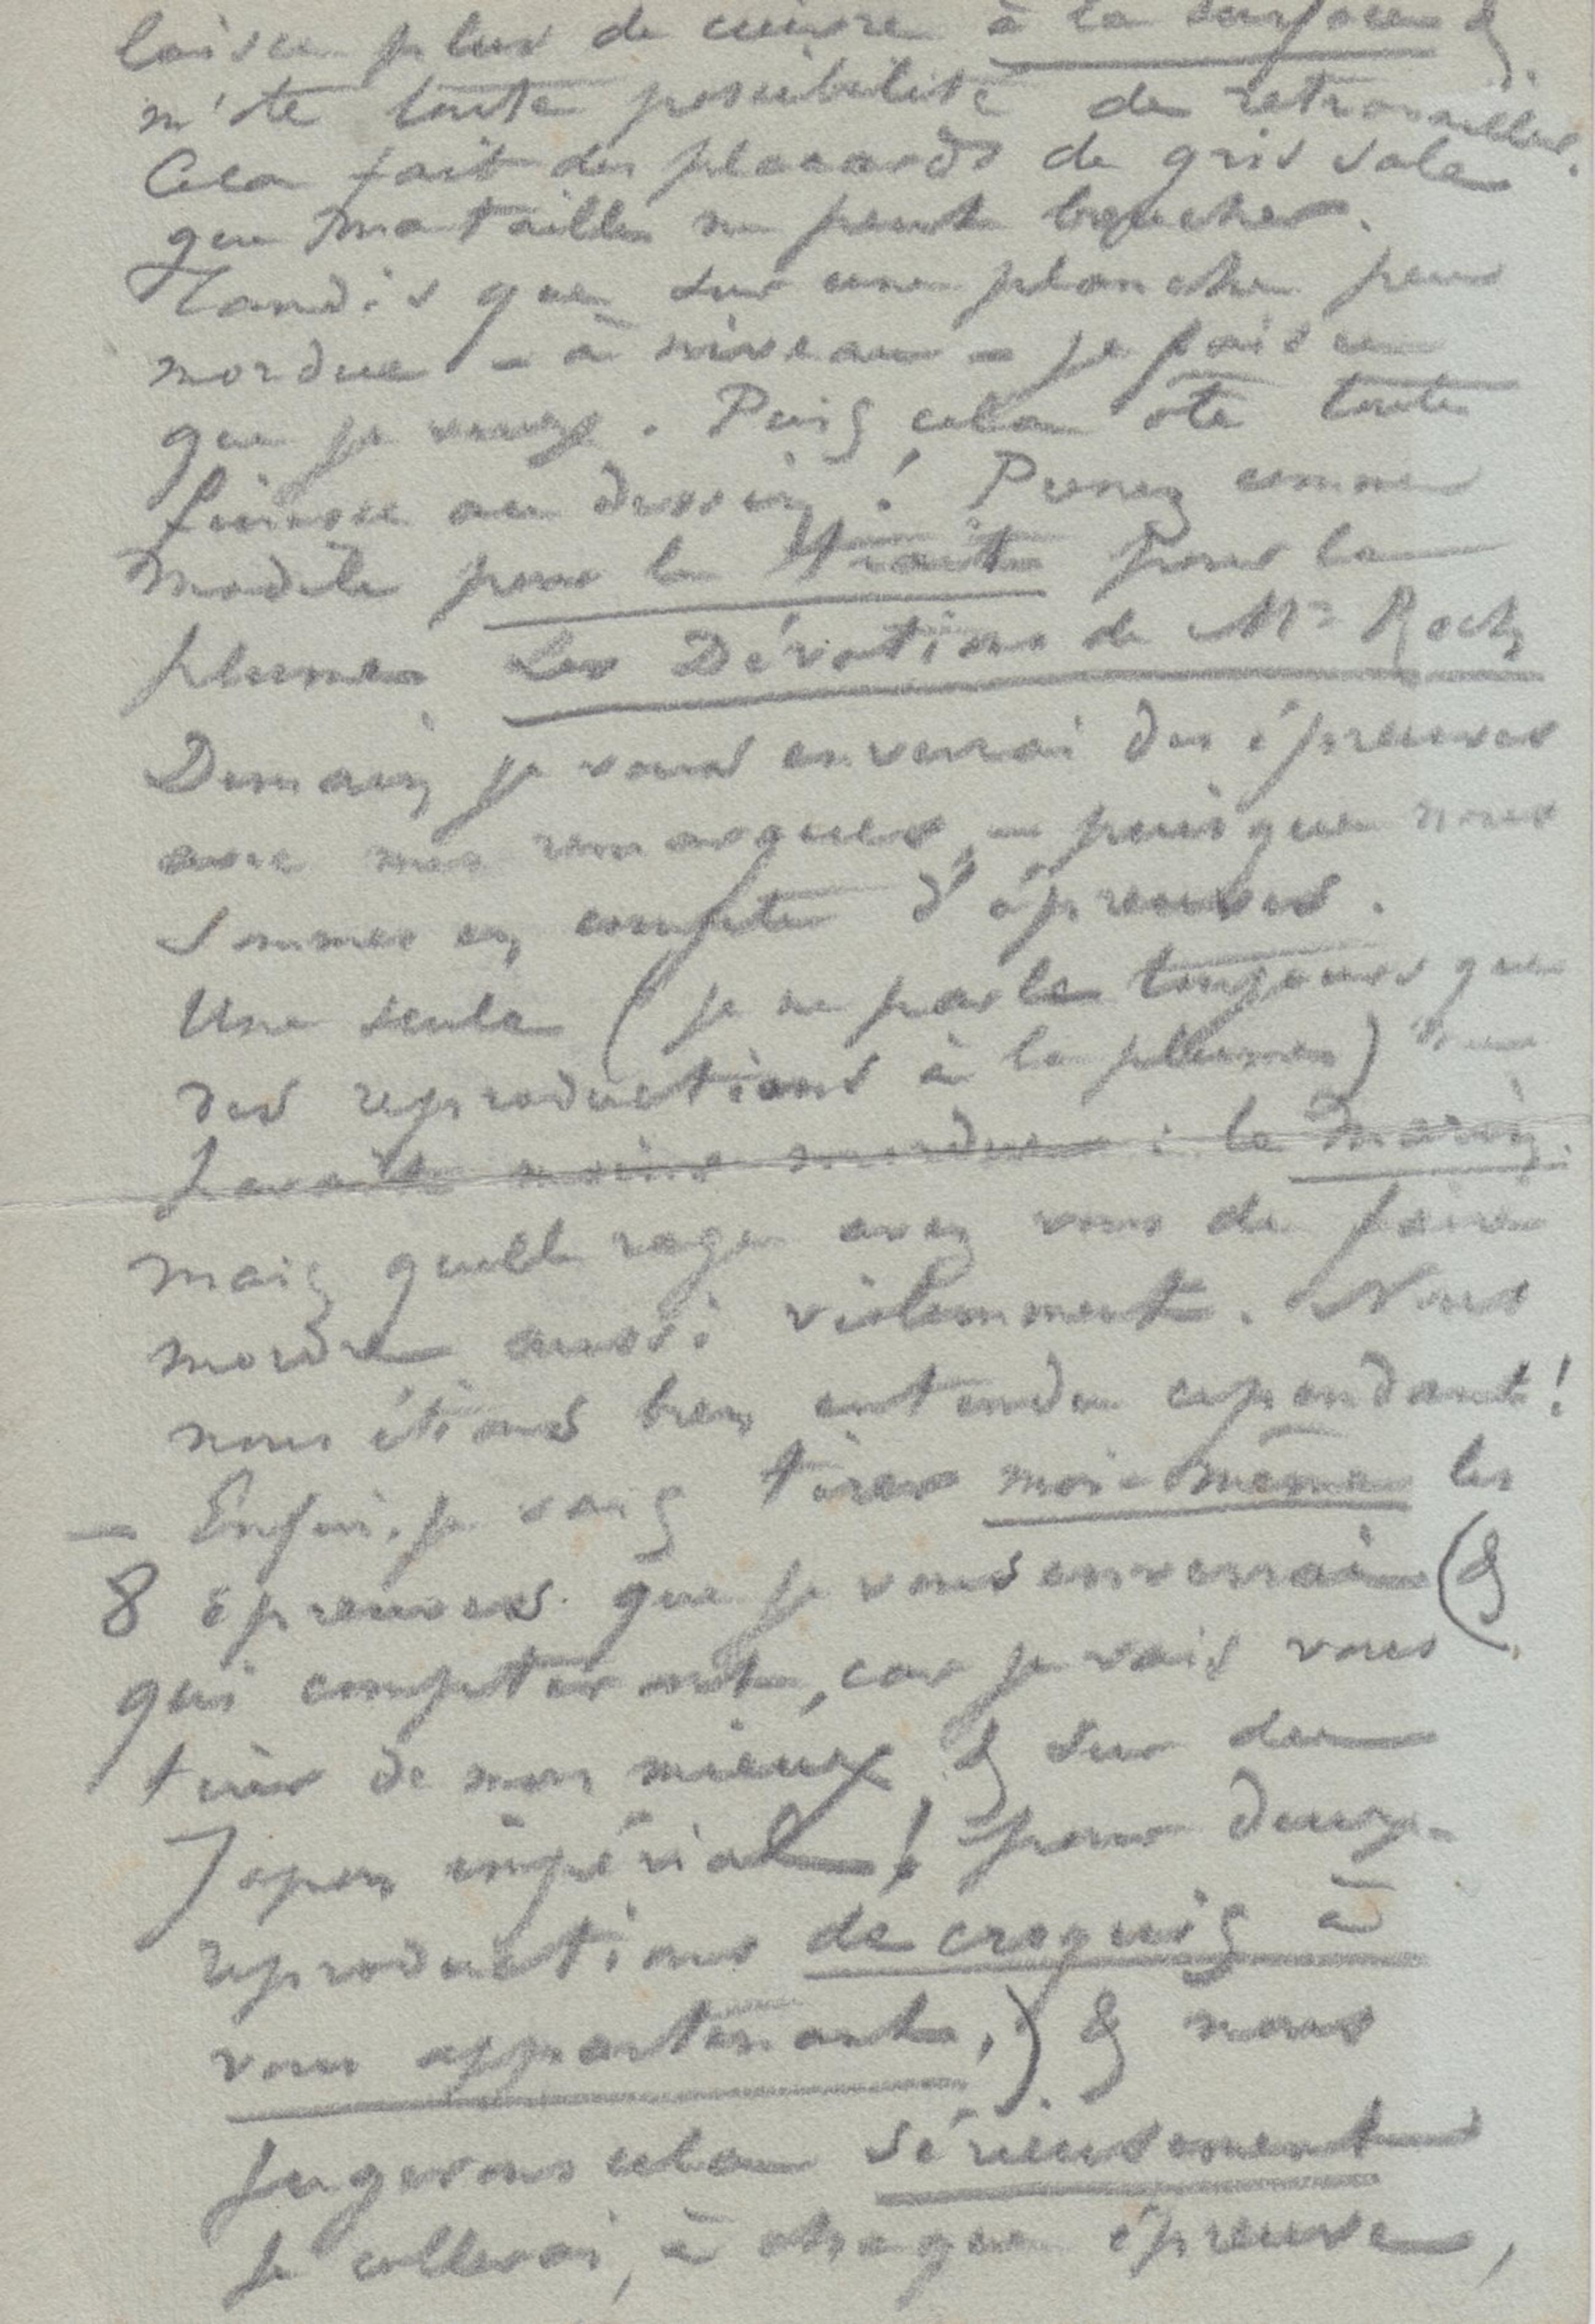 laisse plus de cuivre à la surface &
m'ôte toute possibilité de retravailler.
Cela fait des placards de gris sale
que ma taille ne peut boucher.
Tandis que sur une planche peu
mordue - à niveau - je fais ce
que je veux. Puis cela ôte toute
finesse au dessin ! Prenez comme
modèle pour le trait pour la
plume Les Dévotions de Mr Roch
Demain je vous enverrai des épreuves
avec mes remarques, - puisque nous
sommes en compte d'épreuves.
Une seule (je ne parle toujours que
des reproductions à la plume)
favait moins mordue : le Marin.
Mais quelle rage avez vous de faire
mordre aussi violemment. Nous
nous étions bien entendu cependant !
— Enfin, je vais tirer moi-même les
8 épreuves que je vous enverrai (&
qui compteront, car je vais vous
tirer de mon mieux & sur du
Japon impérial ! pour deux
reproductions de croquis à
vous appartenant,) & nous
jugerons cela sérieusement
Je collerai, à chaque épreuve,